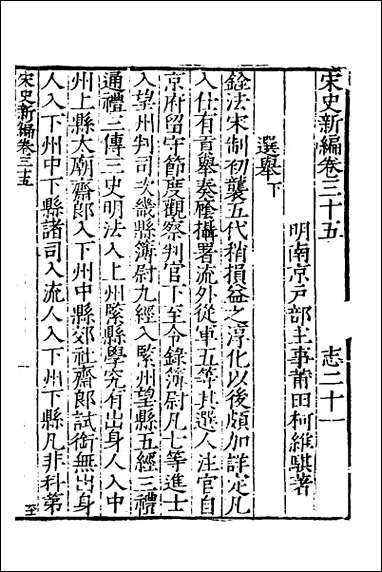 宋史新編卷三十五　志二十一
明南京戶部主事莆田柯維騏著
選舉下
銓法宋制初襲五代稍損益之淳化以後頗加詳定凡
入仕有貢舉奏廕攝署流外從軍五等其選人注官自
京府留守節度觀察判官下至令錄簿尉凡七等進士
入望州判司次畿縣簿尉九經入緊州望縣五經三禮
通禮三傳三史明法入上州緊縣學究有出身人入中
州上縣太廟齋郎入下州中縣郊社齋郎試銜無出身
人入下州中下縣諸司入流人入下州下縣凡非科第
宋史新編卷三五
一
至